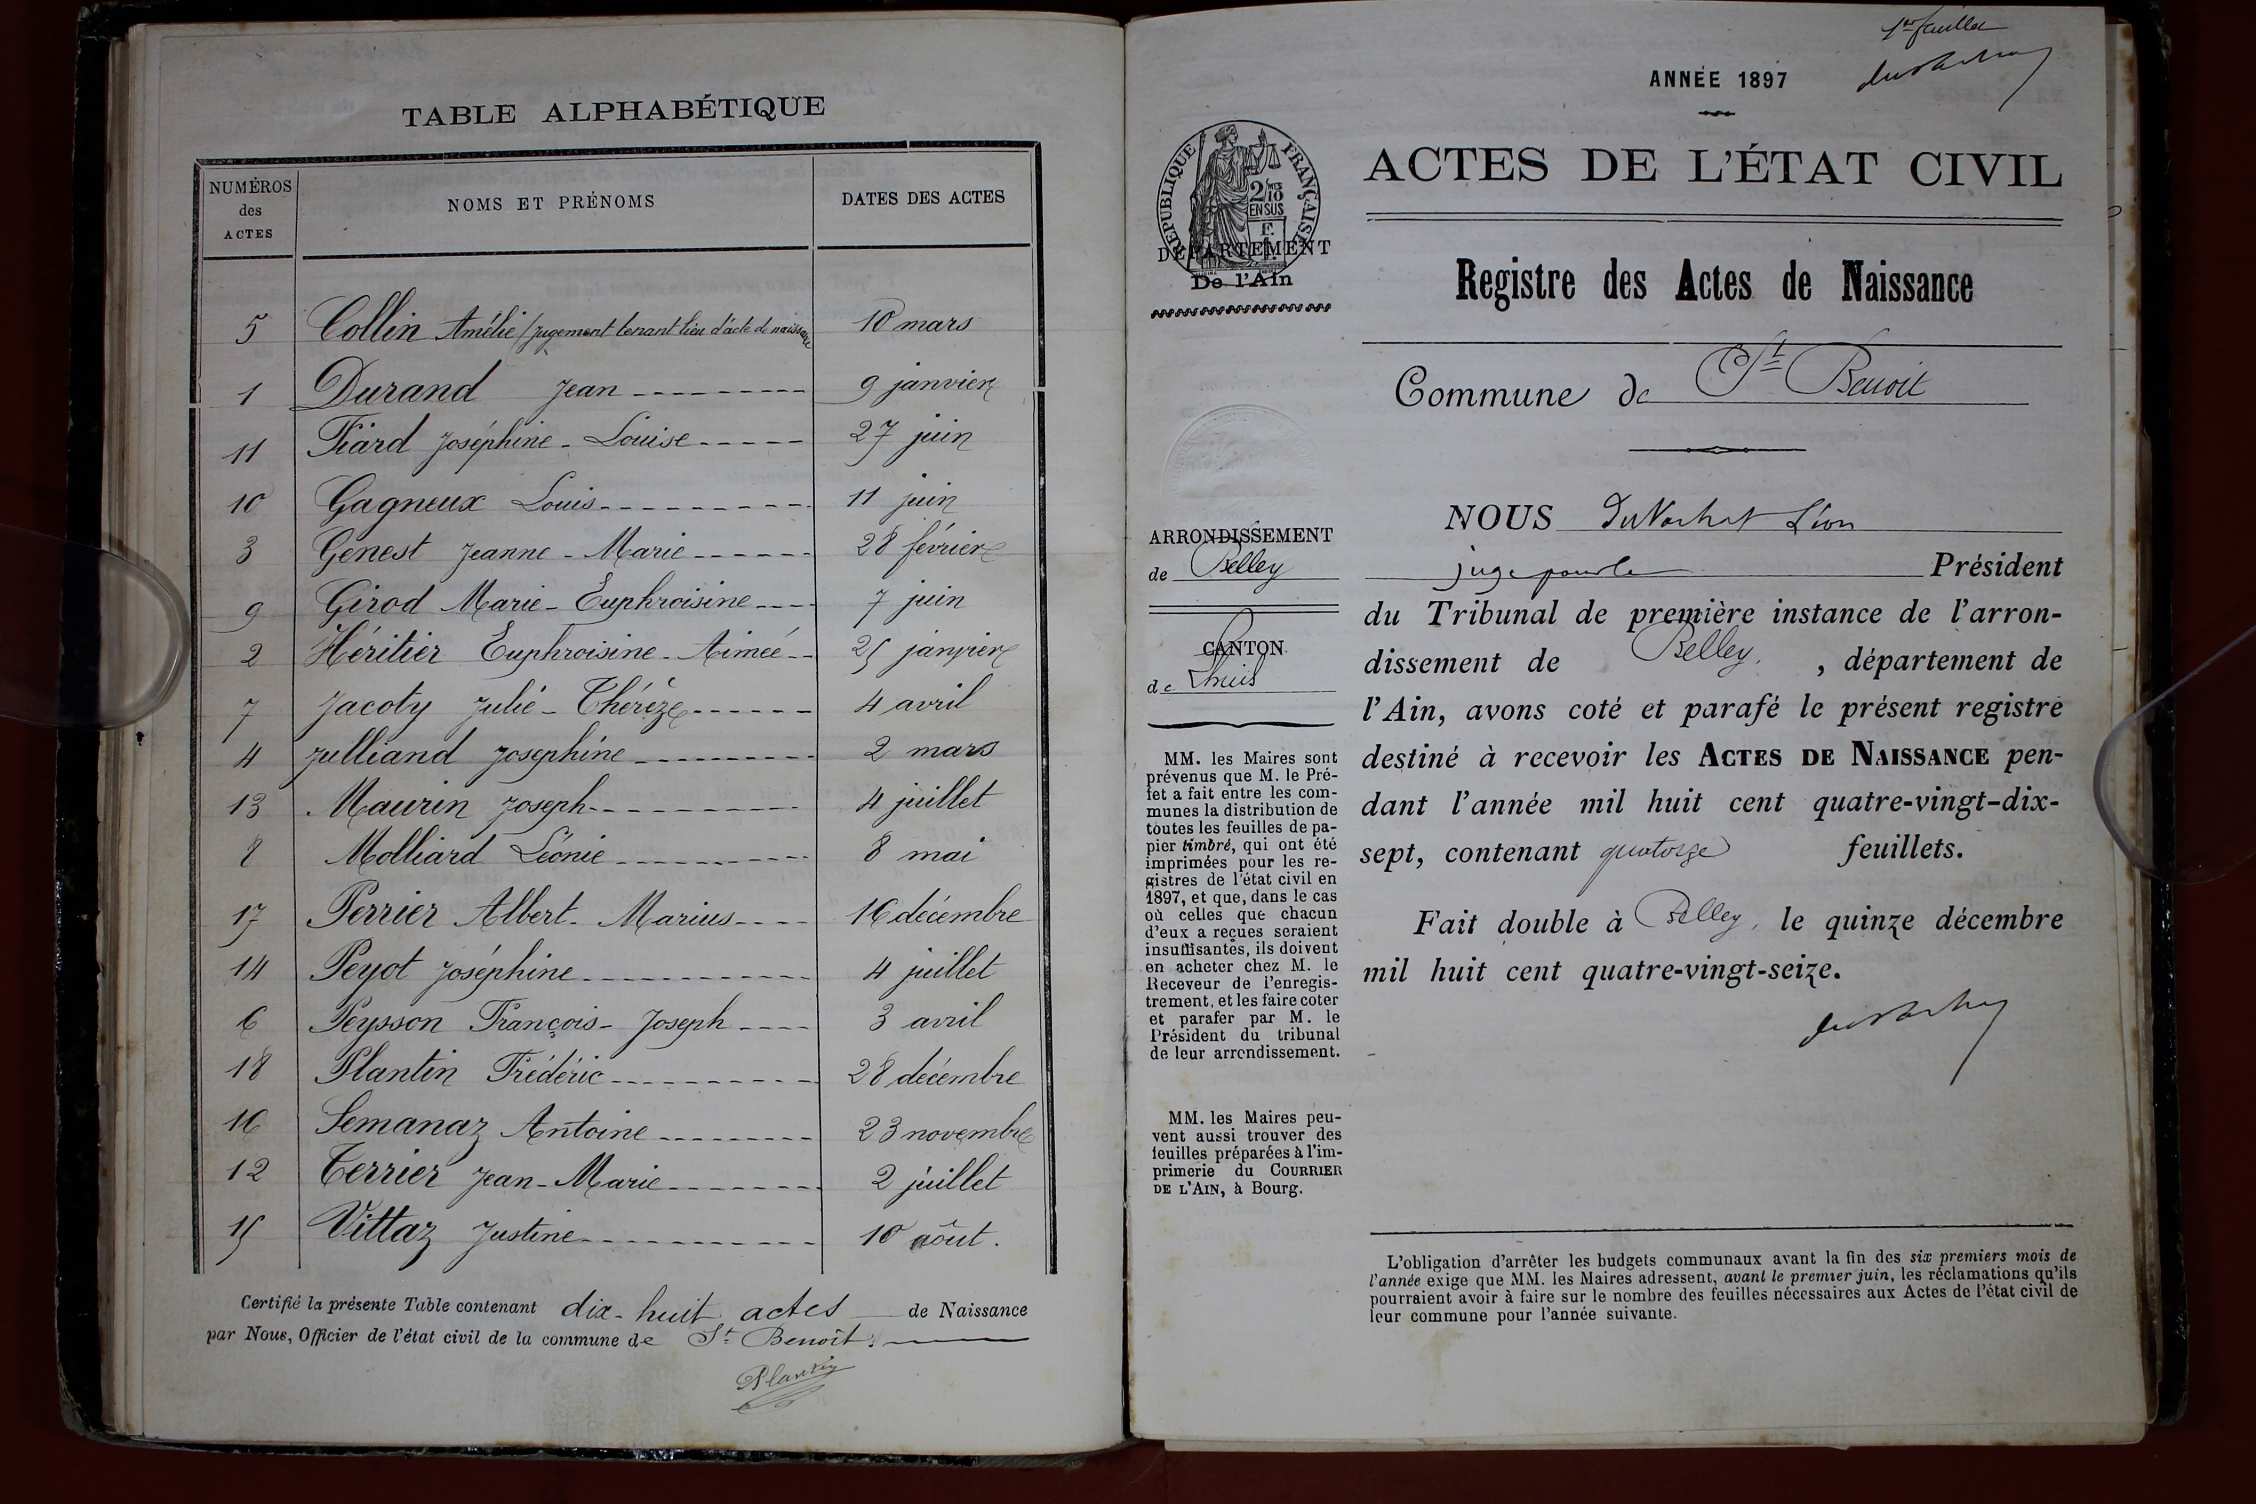 TABLE ALPHABÉTIQUE
NUMÉROS des ACTES
NOMS ET PRÉNOMS
DATES DES ACTES
5 Collin Amélie (jugement tenant lieu d'acte de naissance 10 mars
1 Durand Jean 9 janvier
11 Fiard Joséphine - Louise 27 juin
10 Gagneux Louis 11 juin
3 Genest Jeanne - Marie 28 février
9 Girod Marie - Euphroisine 7 juin
2 Héritier Euphroisine - Aimée 25 janvier
7 Jacoty Julie - Thérèze 4 avril
4 Julliand Josephine 2 mars
13 Maurin Joseph 4 juillet
8 Molliard Léonie 8 mai
17 Perrier Albert - Marius 16 décembre
14 Peyot Joséphine 4 juillet
6 Peysson François - Joseph 3 avril
18 Plantin Frédéric 28 décembre
16 Semanaz Antoine 23 novembre
12 Terrier Jean - Marie 2 juillet
15 Vittaz Justine 10 aôut.
Certifié la présente Table contenant dix-huit actes de Naissance
par Nous, Officier de l'état civil de la commune de St Benoît.
Plantin
1er feuillet
ANNÉE 1897
RÉPUBLIQUE FRANÇAISE
2/10 EN SUS
DÉPARTEMENT
De l'Ain
ACTES DE L'ÉTAT CIVIL
Registre des Actes de Naissance
Commune de St Benoit
ARRONDISSEMENT
de Belley
CANTON
de Lhuis
MM. les Maires sont
prévenus que M. le Pré-
fet a fait entre les com-
munes la distribution de
toutes les feuilles de pa-
pier timbré, qui ont été
imprimées pour les re-
gistres de l'état civil en
1897, et que, dans le cas
où celles que chacun
d'eux a reçues seraient
insuffisantes, ils doivent
en acheter chez M. le
Receveur de l'enregis-
trement, et les faire coter
et parafer par M. le
Président du tribunal
de leur arrondissement.
MM. les Maires peu-
vent aussi trouver des
feuilles préparées à l'im-
primerie du COURRIER
DE L'AIN, à Bourg.
NOUS DuVachat Léon
juge pour le Président
du Tribunal de première instance de l'arron-
dissement de Belley, département de
l'Ain, avons coté et parafé le présent registre
destiné à recevoir les ACTES DE NAISSANCE pen-
dant l'année mil huit cent quatre-vingt-dix-
sept, contenant quatorze feuillets.
Fait double à Belley, le quinze décembre
mil huit cent quatre-vingt-seize.
L'obligation d'arrêter les budgets communaux avant la fin des six premiers mois de
l'année exige que MM. les Maires adressent, avant le premier juin, les réclamations qu'ils
pourraient avoir à faire sur le nombre des feuilles nécessaires aux Actes de l'état civil de
leur commune pour l'année suivante.